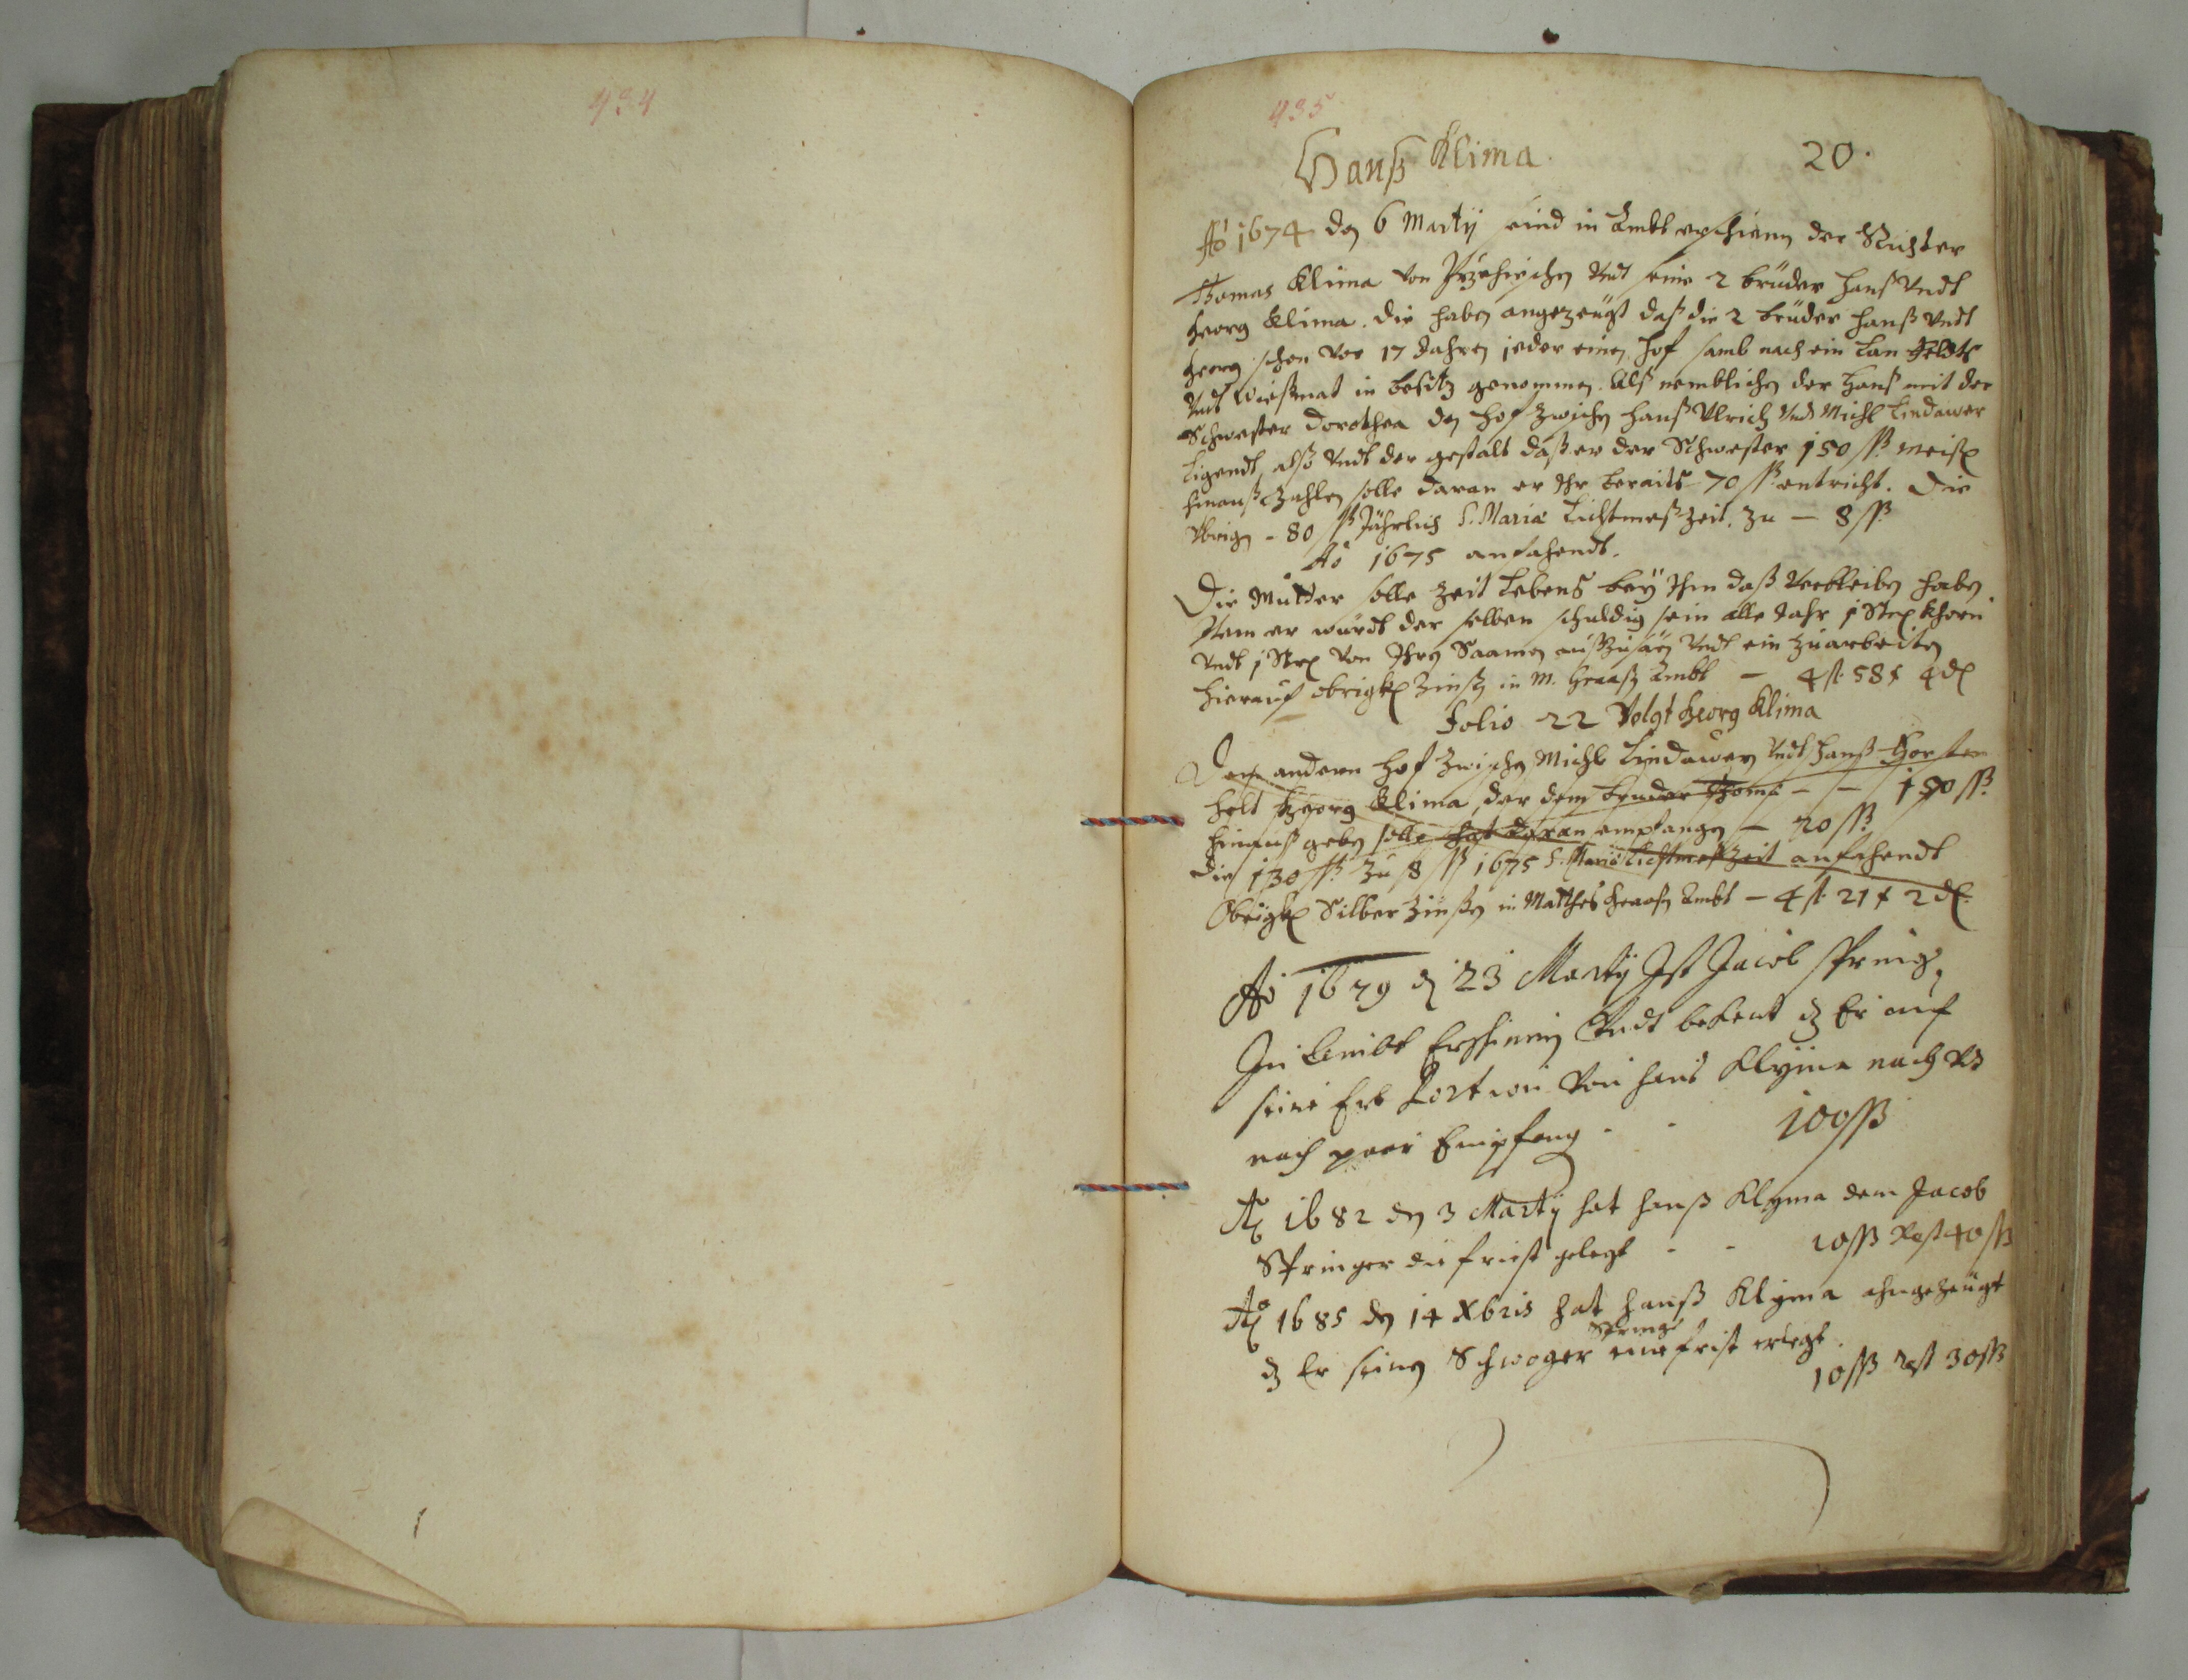 434
435
Hanß Klima.
20.
Aó 1674 den 6 Martÿ sind in Ambt erschienen der Richter
Thomas Klima von vndt seine 2 brüder Hanß vndt
Georg Klima. die haben angezeügt daß die 2 brüder Hanß vndt
Georg schon vor 17 Jahren jeder einen Hof samb nach ein Lan Feldts
vndt Wießmat in besitz genommen. Alß nemblichen der Hanß mit der
Schwester Dorothea den Hof zwischen Hanß Ulrich vndt Michl Lindawer
ligendt, alßo vndt der gestalt daß er der Schwester 150 ßß meiß
hinauß zahlen solle daran er Ihr beraits 70 ßß entricht. die
vbrigen - 80 ßß Jährlich S. Mariæ Lichtmeßzeit. zu — 8 ßß
Aó 1675 anfahendt.
Die Mutter solle zeit Lebens beÿ Ihm daß verbleiben haben
Item er würdt der selben schuldig sein alle Jahr 1 Str Khorn
vndt 1 Str von Ihren Saamen außzusäen vndt ein zuarbeiten
hierauf obrigk Zinßen in M. Ambt — 4 ß. 58 x 4 d
Folio 22 Volgt Georg Klima
Den andern Hof zwischen Michl Lindawer vndt Hanß
helt Georg Klima, der dem bruder Thoma - - 150 ßß
hinauß geben solle hat daran empfangen — 20 ßß
die 130 ßß zu 8 ßß 1675 S. Mariæ Lichtmeßzeit anfahendt
Obrigk Silber Zinßen in Matthes Ambt — 4 ß. 21 x 2 d
Aó 1679 d 23 Martÿ Ist Jacob Springer
In Ambt Erschinen Vndt bekent dz Er auf
seine Erb Portion von Hans Klÿma nach vnd
nach paar Empfang - - 100 ßß
Aó 1682 den 3 Martÿ hat Hanß Klyma dem Jacob
Springer die frist gelegt - - 10 ßß Rest 40 ßß
Aó 1685 den 14 Xbris hat Hanß Klÿma ahngezeügt
Springer
dz Er seinen Schwager eine frist erlegt.
10 ßß Rest 30 ßß